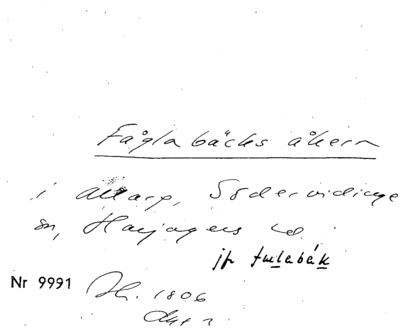 Fåglabäcks åkern
i Allarp, Södervidinge
sn, Harjagers hd
jfr fulabák
Nr 9991
1806